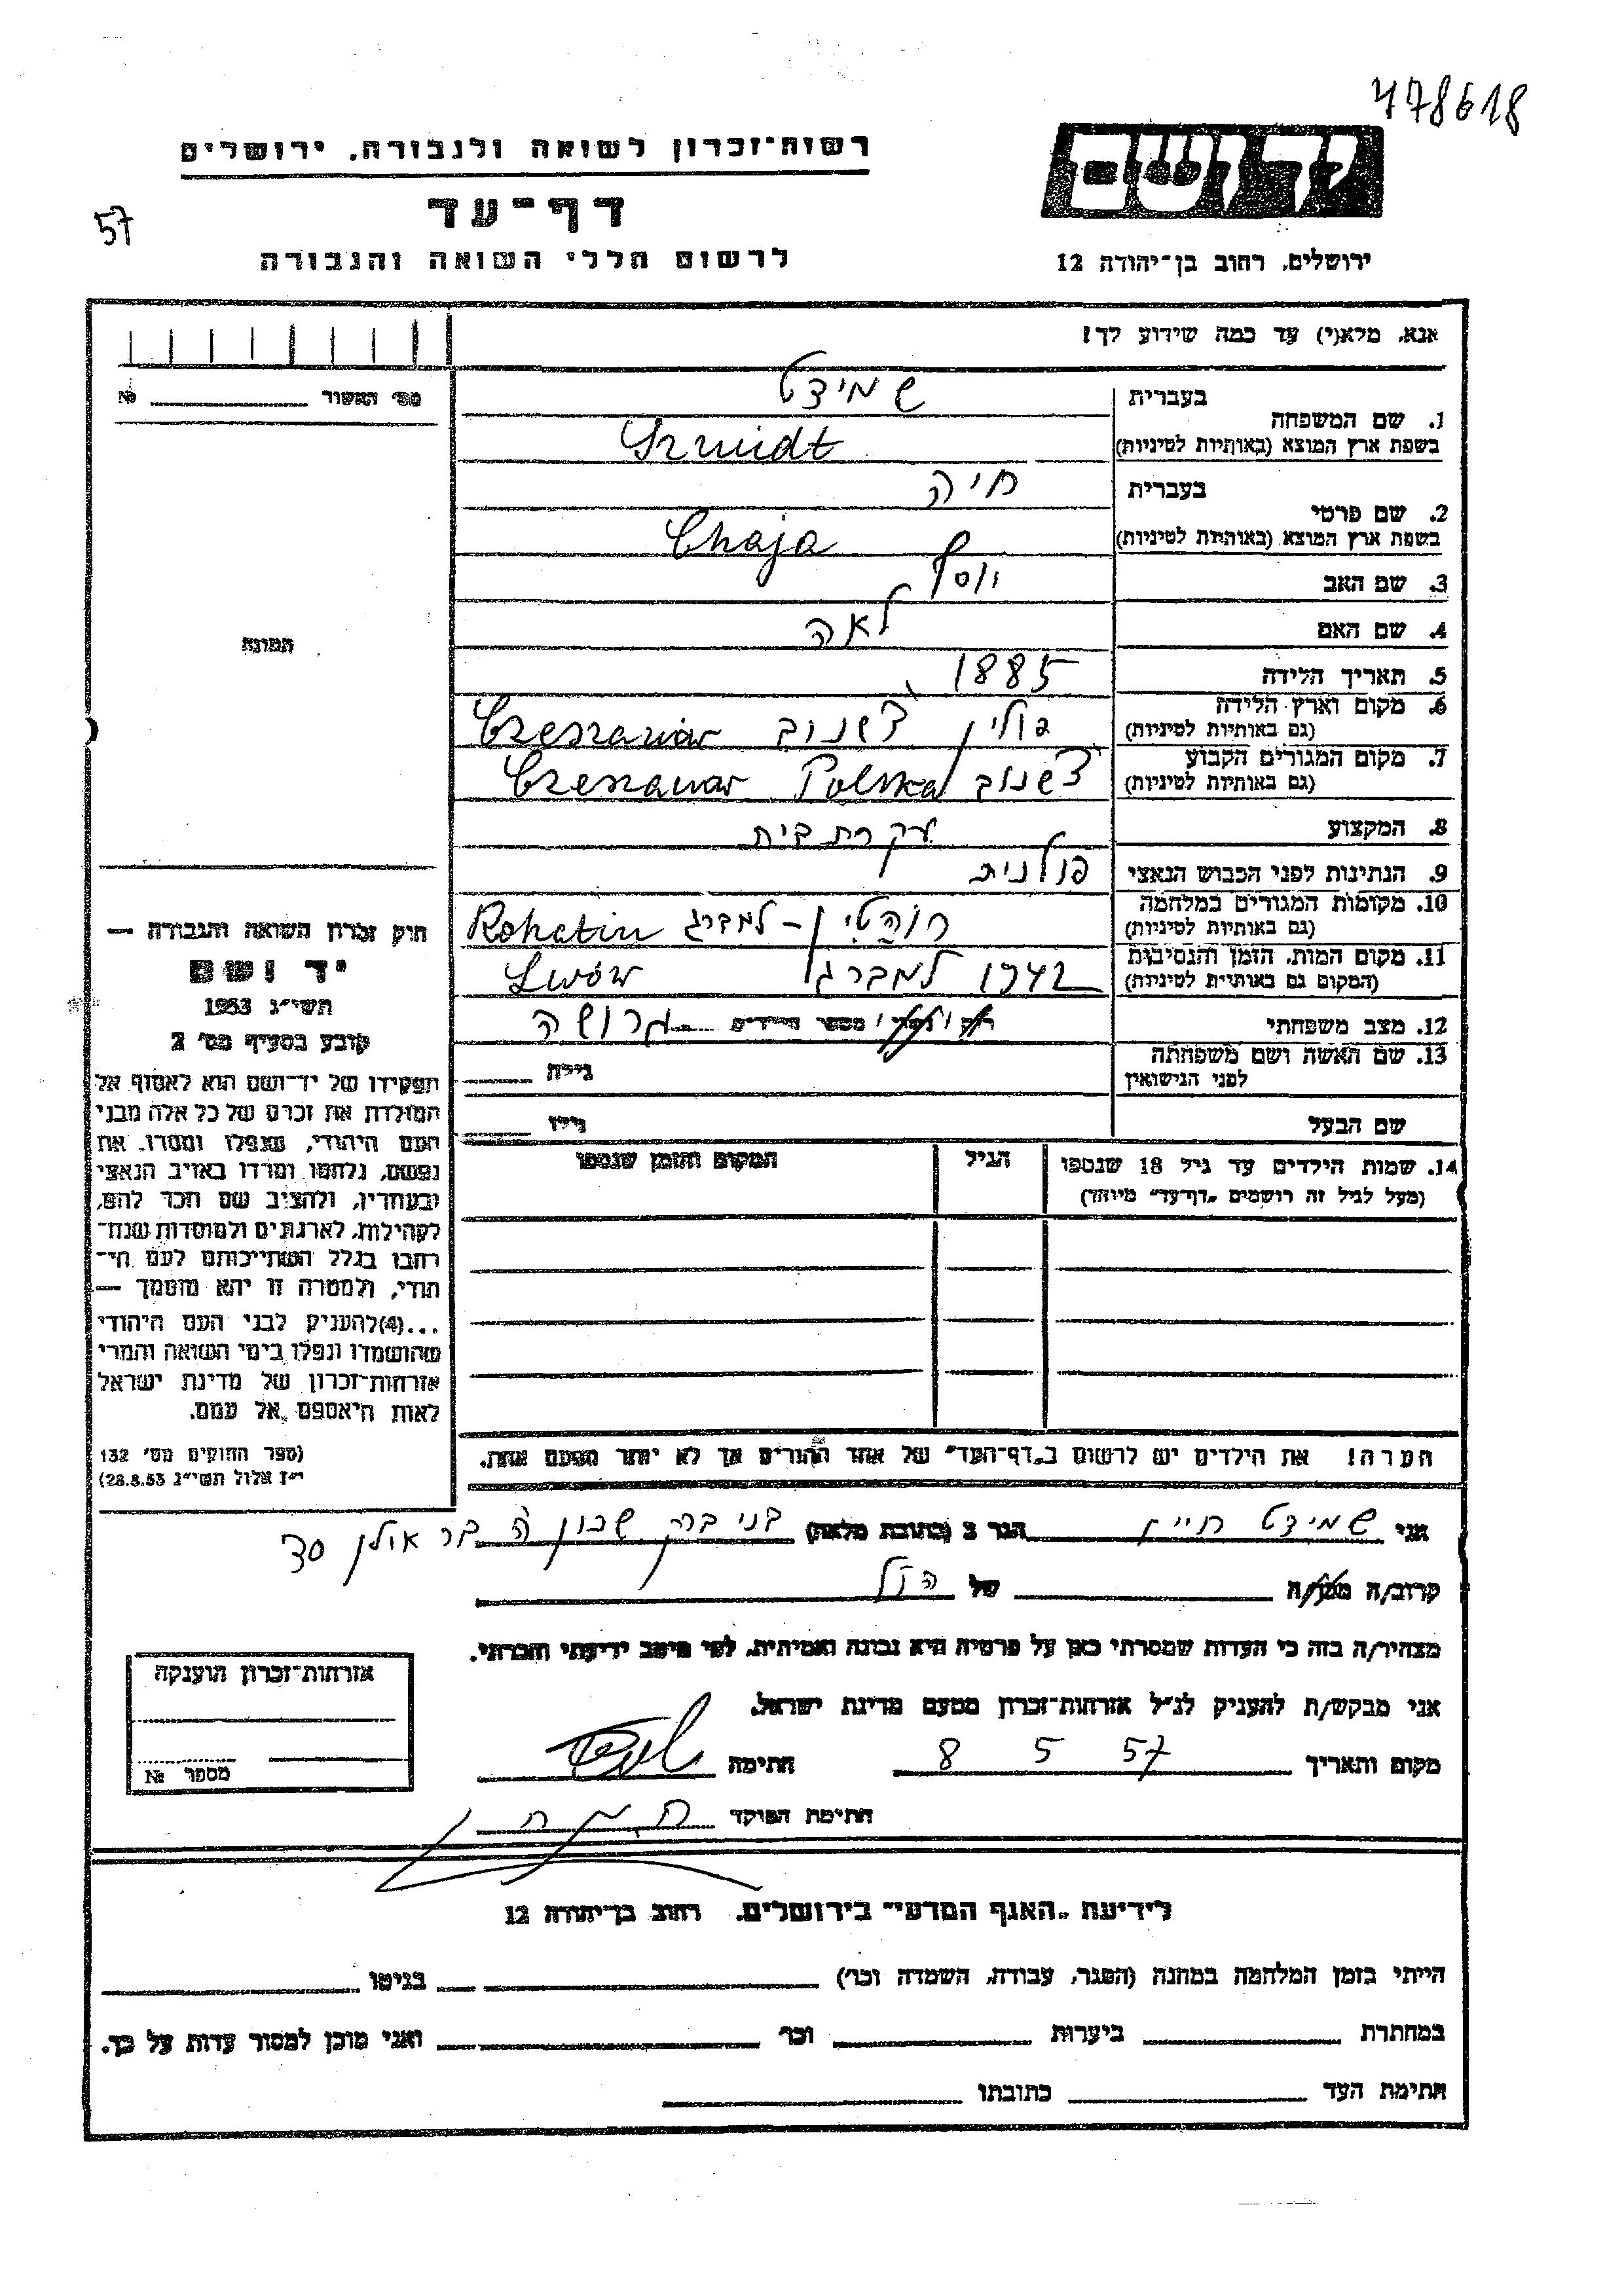 478618
רשות־זכרון לשואה ולגבורה, ירושלים
יד ושם
דף־עד
57
לרשום חללי השואה והגבורה
ירושלים, רחוב בן־יהודה 12
אנא, מלא(י) עד כמה שידוע לך!
מס' האשור № ______
1. שם המשפחה
בעברית שמידט
בשפת ארץ המוצא (באותיות לטיניות) Szmidt
2. שם פרטי
בעברית חיה
בשפת ארץ המוצא (באותיות לטיניות) Chaja
3. שם האב יוסף
4. שם האם לאה
תמונה
5. תאריך הלידה 1885
6. מקום וארץ הלידה
(גם באותיות לטיניות) פולין צ'שנוב Czeszanów
7. מקום המגורים הקבוע
(גם באותיות לטיניות) צ'שנוב Polska Czeszanow
8. המקצוע עקרת בית
9. הנתינות לפני הכבוש הנאצי פולנית
10. מקומות המגורים במלחמה
(גם באותיות לטיניות) רוהטין – למברג Rohatin
11. מקום המות, הזמן והנסיבות
(המקום גם באותיות לטיניות) 1942 למברג Lwów
12. מצב משפחתי גרושה
מספר הילדים
13. שם האשה ושם משפחתה
לפני הנישואין גילה
שם הבעל גילו
14. שמות הילדים עד גיל 18 שנספו
(מעל לגיל זה רושמים "דף־עד" מיוחד)
הגיל
המקום והזמן שנספו
הערה! את הילדים יש לרשום ב"דף־העד" של אחד ההורים אך לא יותר מפעם אחת.
חוק זכרון השואה והגבורה —
יד ושם
תשי"ג 1953
קובע בסעיף מס' 2
תפקידו של יד־ושם הוא לאסוף אל
המולדת את זכרם של כל אלה מבני
העם היהודי, שנפלו ומסרו את
נפשם, נלחמו ומרדו באויב הנאצי
ובעוזריו, ולהציב שם וזכר להם,
לקהילות, לארגונים ולמוסדות שנח־
רבו בגלל השתייכותם לעם הי־
הודי, ולמטרה זו יהא מוסמך —
...(4) להעניק לבני העם היהודי
שהושמדו ונפלו בימי השואה והמרי
אזרחות־זכרון של מדינת ישראל
לאות היאספם אל עמם.
(ספר החוקים מס' 132
י"ז אלול תשי"ג 28.8.53)
אני שמידט חיים הגר ב (כתובת מלאה) בני ברק שכון ה בר אילן 30
קרוב/ה מכר/ה של הנ"ל
מצהיר/ה בזה כי העדות שמסרתי כאן על פרטיה היא נכונה ואמיתית, לפי מיטב ידיעתי והכרתי.
אני מבקש/ת להעניק לנ"ל אזרחות־זכרון מטעם מדינת ישראל.
מקום ותאריך 8 5 57 חתימה
אזרחות־זכרון הוענקה
מספר №
חתימת הפוקד
לידיעת "האגף המדעי" בירושלים, רחוב בן־יהודה 12
הייתי בזמן המלחמה במחנה (הסגר, עבודה, השמדה וכו') ______ בגיטו ______
במחתרת ______ ביערות ______ וכו' ______ ואני מוכן למסור עדות על כך.
חתימת העד ______ כתובתו ______